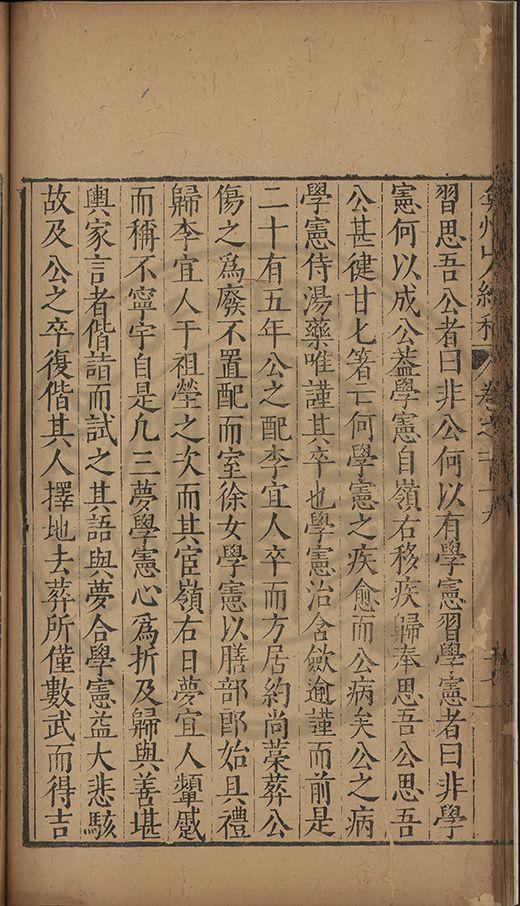 弇州山人續稿 卷之
習思吾公者曰非公何以有學憲習學憲者曰非學
憲何以成公葢學憲自嶺右移疾歸奉思吾公思吾
公甚健甘匕箸亡何學憲之疾愈而公病矣公之病
學憲侍湯藥唯謹其卒也學憲治含斂逾謹而前是
二十有五年公之配李宜人卒而方居約尚藁葬公
傷之爲廢不置配而室徐女學憲以膳部郎始具禮
歸李宜人于祖塋之次而其宦嶺右日夢宜人顰蹙
而稱不寧宇自是凡三夢學憲心爲折及歸與善堪
輿家言者偕詣而試之其語與夢合學憲益大悲駭
故及公之卒復偕其人擇地去葬所僅數武而得吉